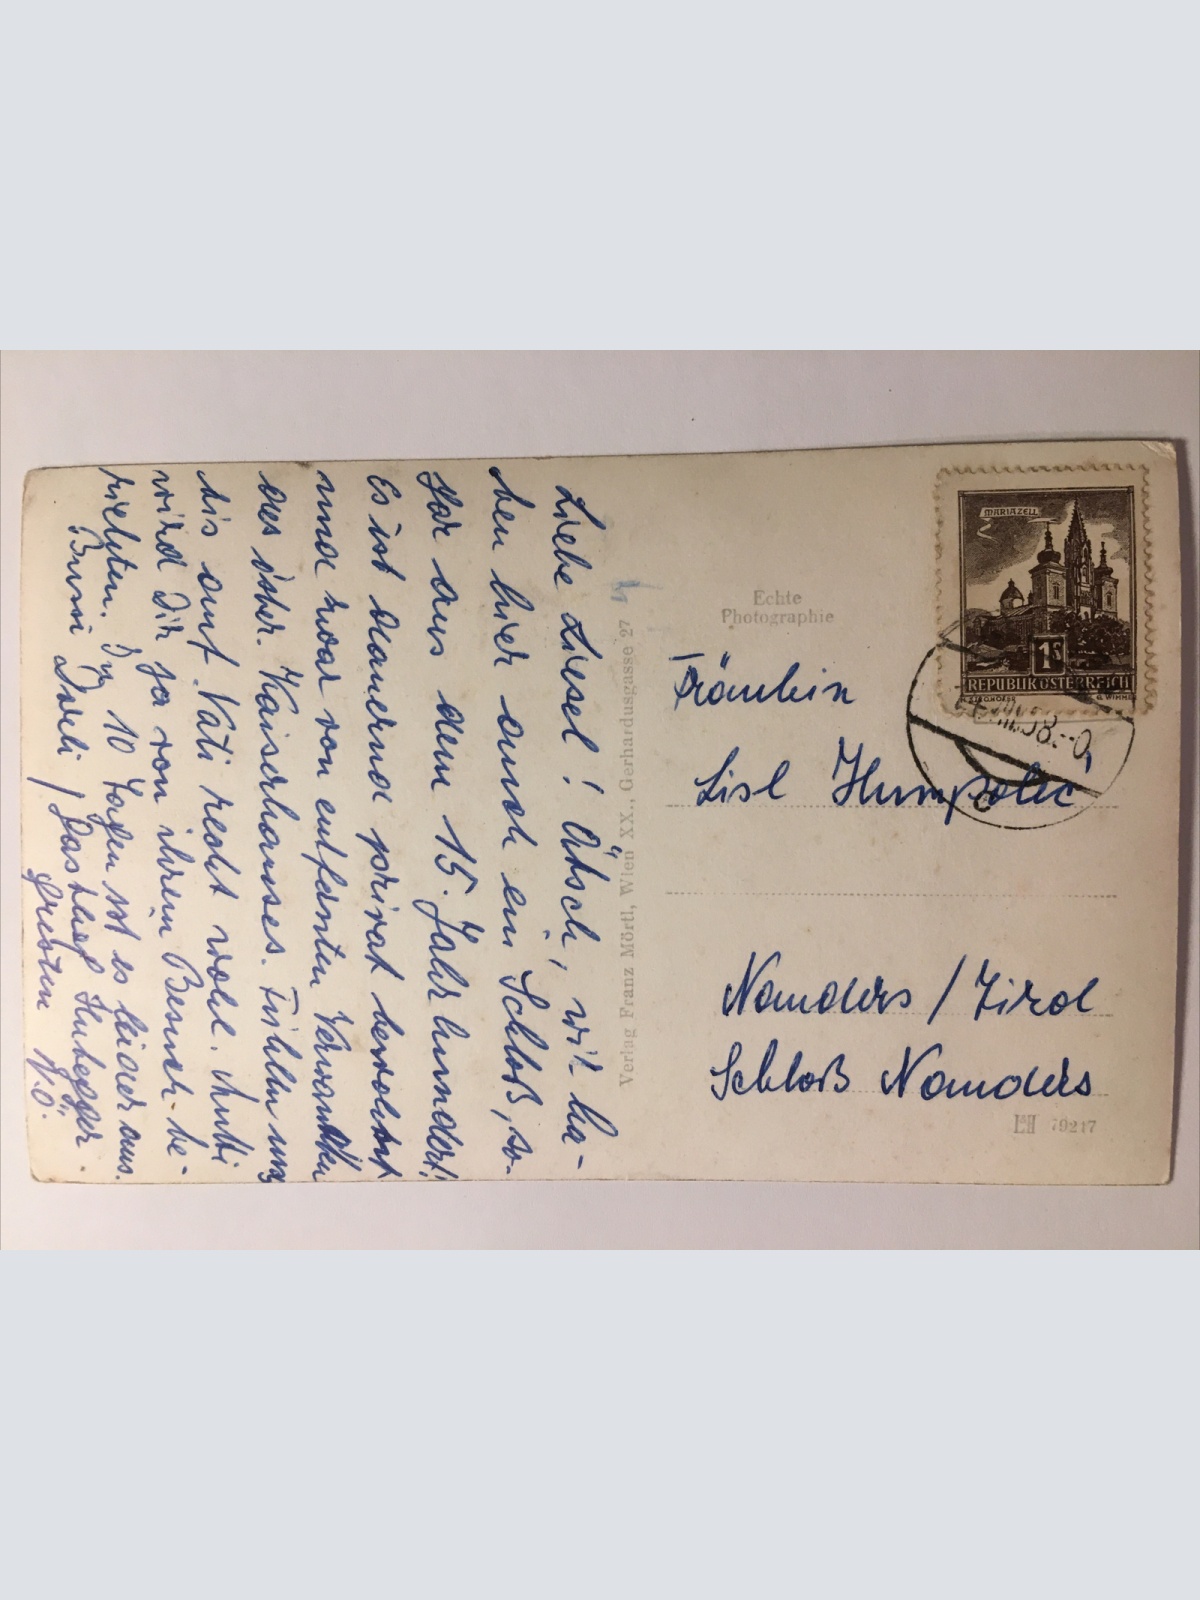 Liebe Liesel! Ätsch, wir ha-
ben hier auch ein Schloß, so-
gar aus dem 15. Jahrhundert!
Es ist dauernd privat bewohnt
und zwar von entfernten Verwandten
des österr. Kaiserhauses. Fühlen uns
bis auf Vati recht wohl. Mutti
wird Dir ja von ihrem Besuch be-
richten. In 10 Tagen ist es leider aus.
Bussi Dorli / Gasthof Hubegger
Gresten N.Ö.
Verlag Franz Mörtl, Wien XX., Gerhardusgasse 27
Echte
Photographie
MARIAZELL
1S
REPUBLIK ÖSTERREICH
58.-0
Fräulein
Lisl Humpolec
Nauders / Tirol
Schloß Nauders
79217